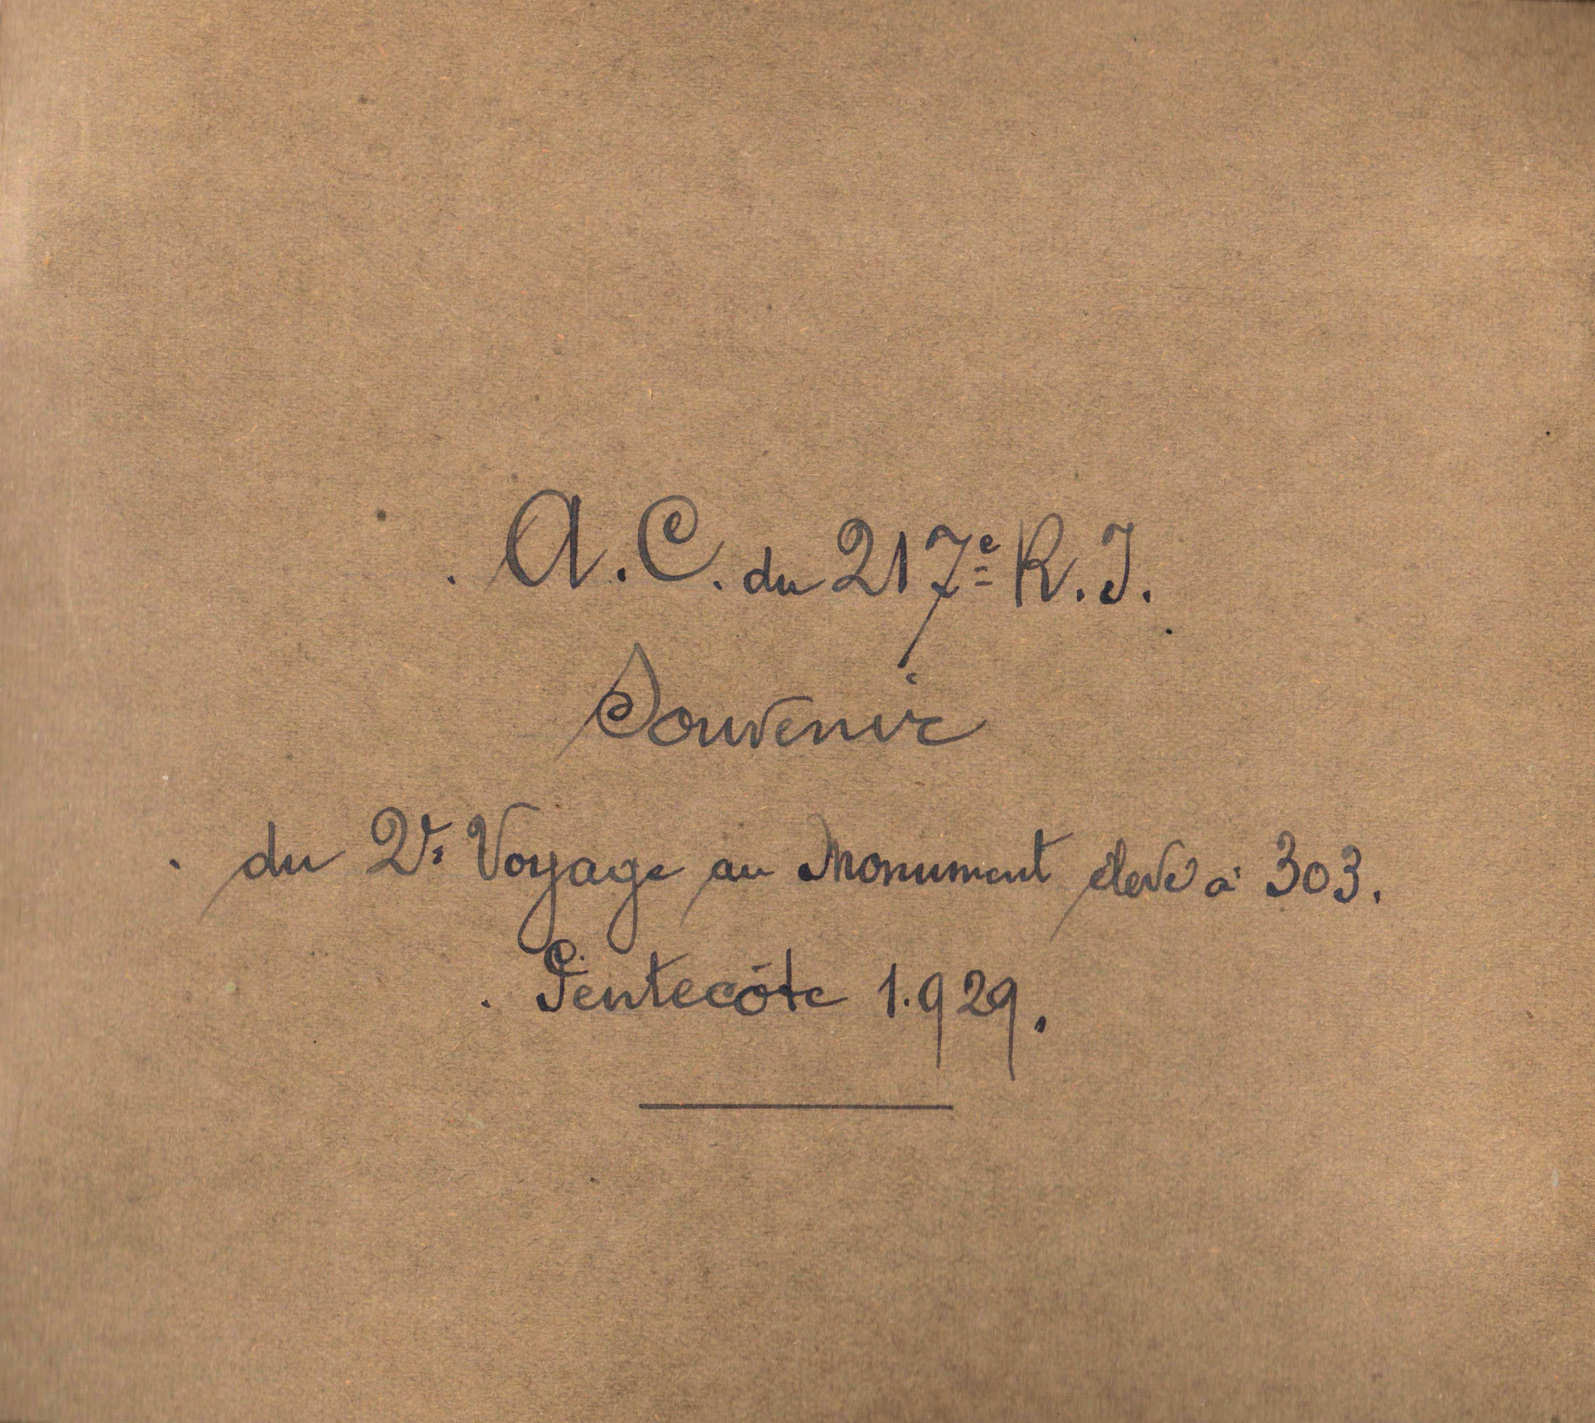 . A. C. du 217e R. I.
Souvenir
. du 2e Voyage au Monument élevé à 303.
. Pentecôte 1.929.